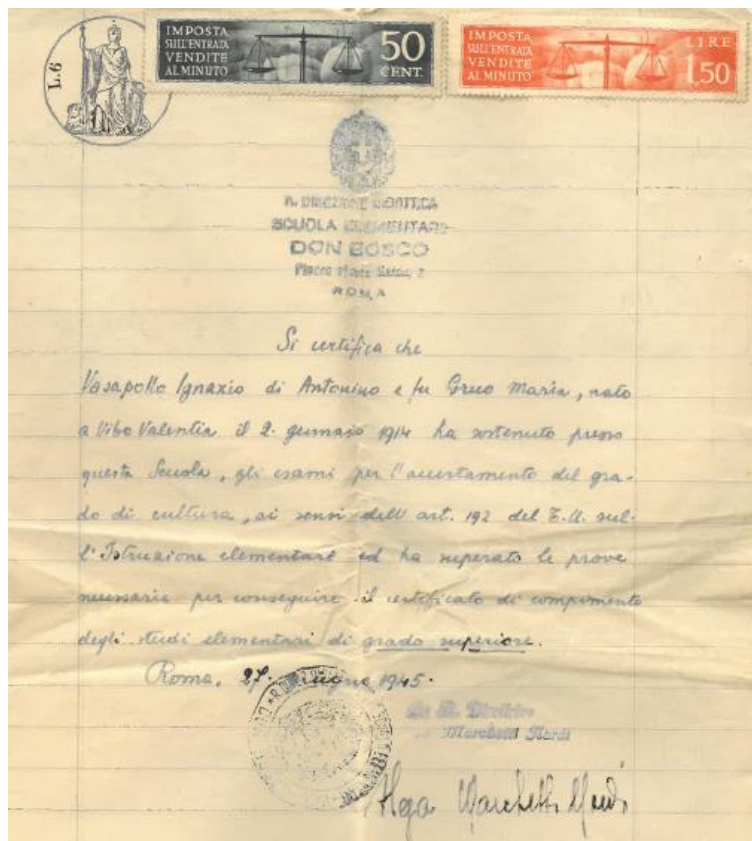 L.6
IMPOSTA
SULL'ENTRATA
VENDITE
AL MINUTO
50
CENT.
IMPOSTA
SULL'ENTRATA
VENDITE
AL MINUTO
LIRE
1,50
R. DIREZIONE DIDATTICA
SCUOLA ELEMENTARE
DON BOSCO
ROMA
Si certifica che
Vasapollo Ignazio di Antonino e fu Greco Maria, nato
a Vibo Valentia il 2. gennaio 1914 ha sostenuto presso
questa Scuola, gli esami per l'accertamento del gra-
do di cultura, ai sensi dell' art. 192 del T.U. sul-
l'Istruzione elementare ed ha superato le prove
necessarie per conseguire il certificato di compimento
degli studi elementari di grado superiore.
Roma, 27. 1945.
La R. Direttrice
Marchetti Nardi
Olga Marchetti Nardi